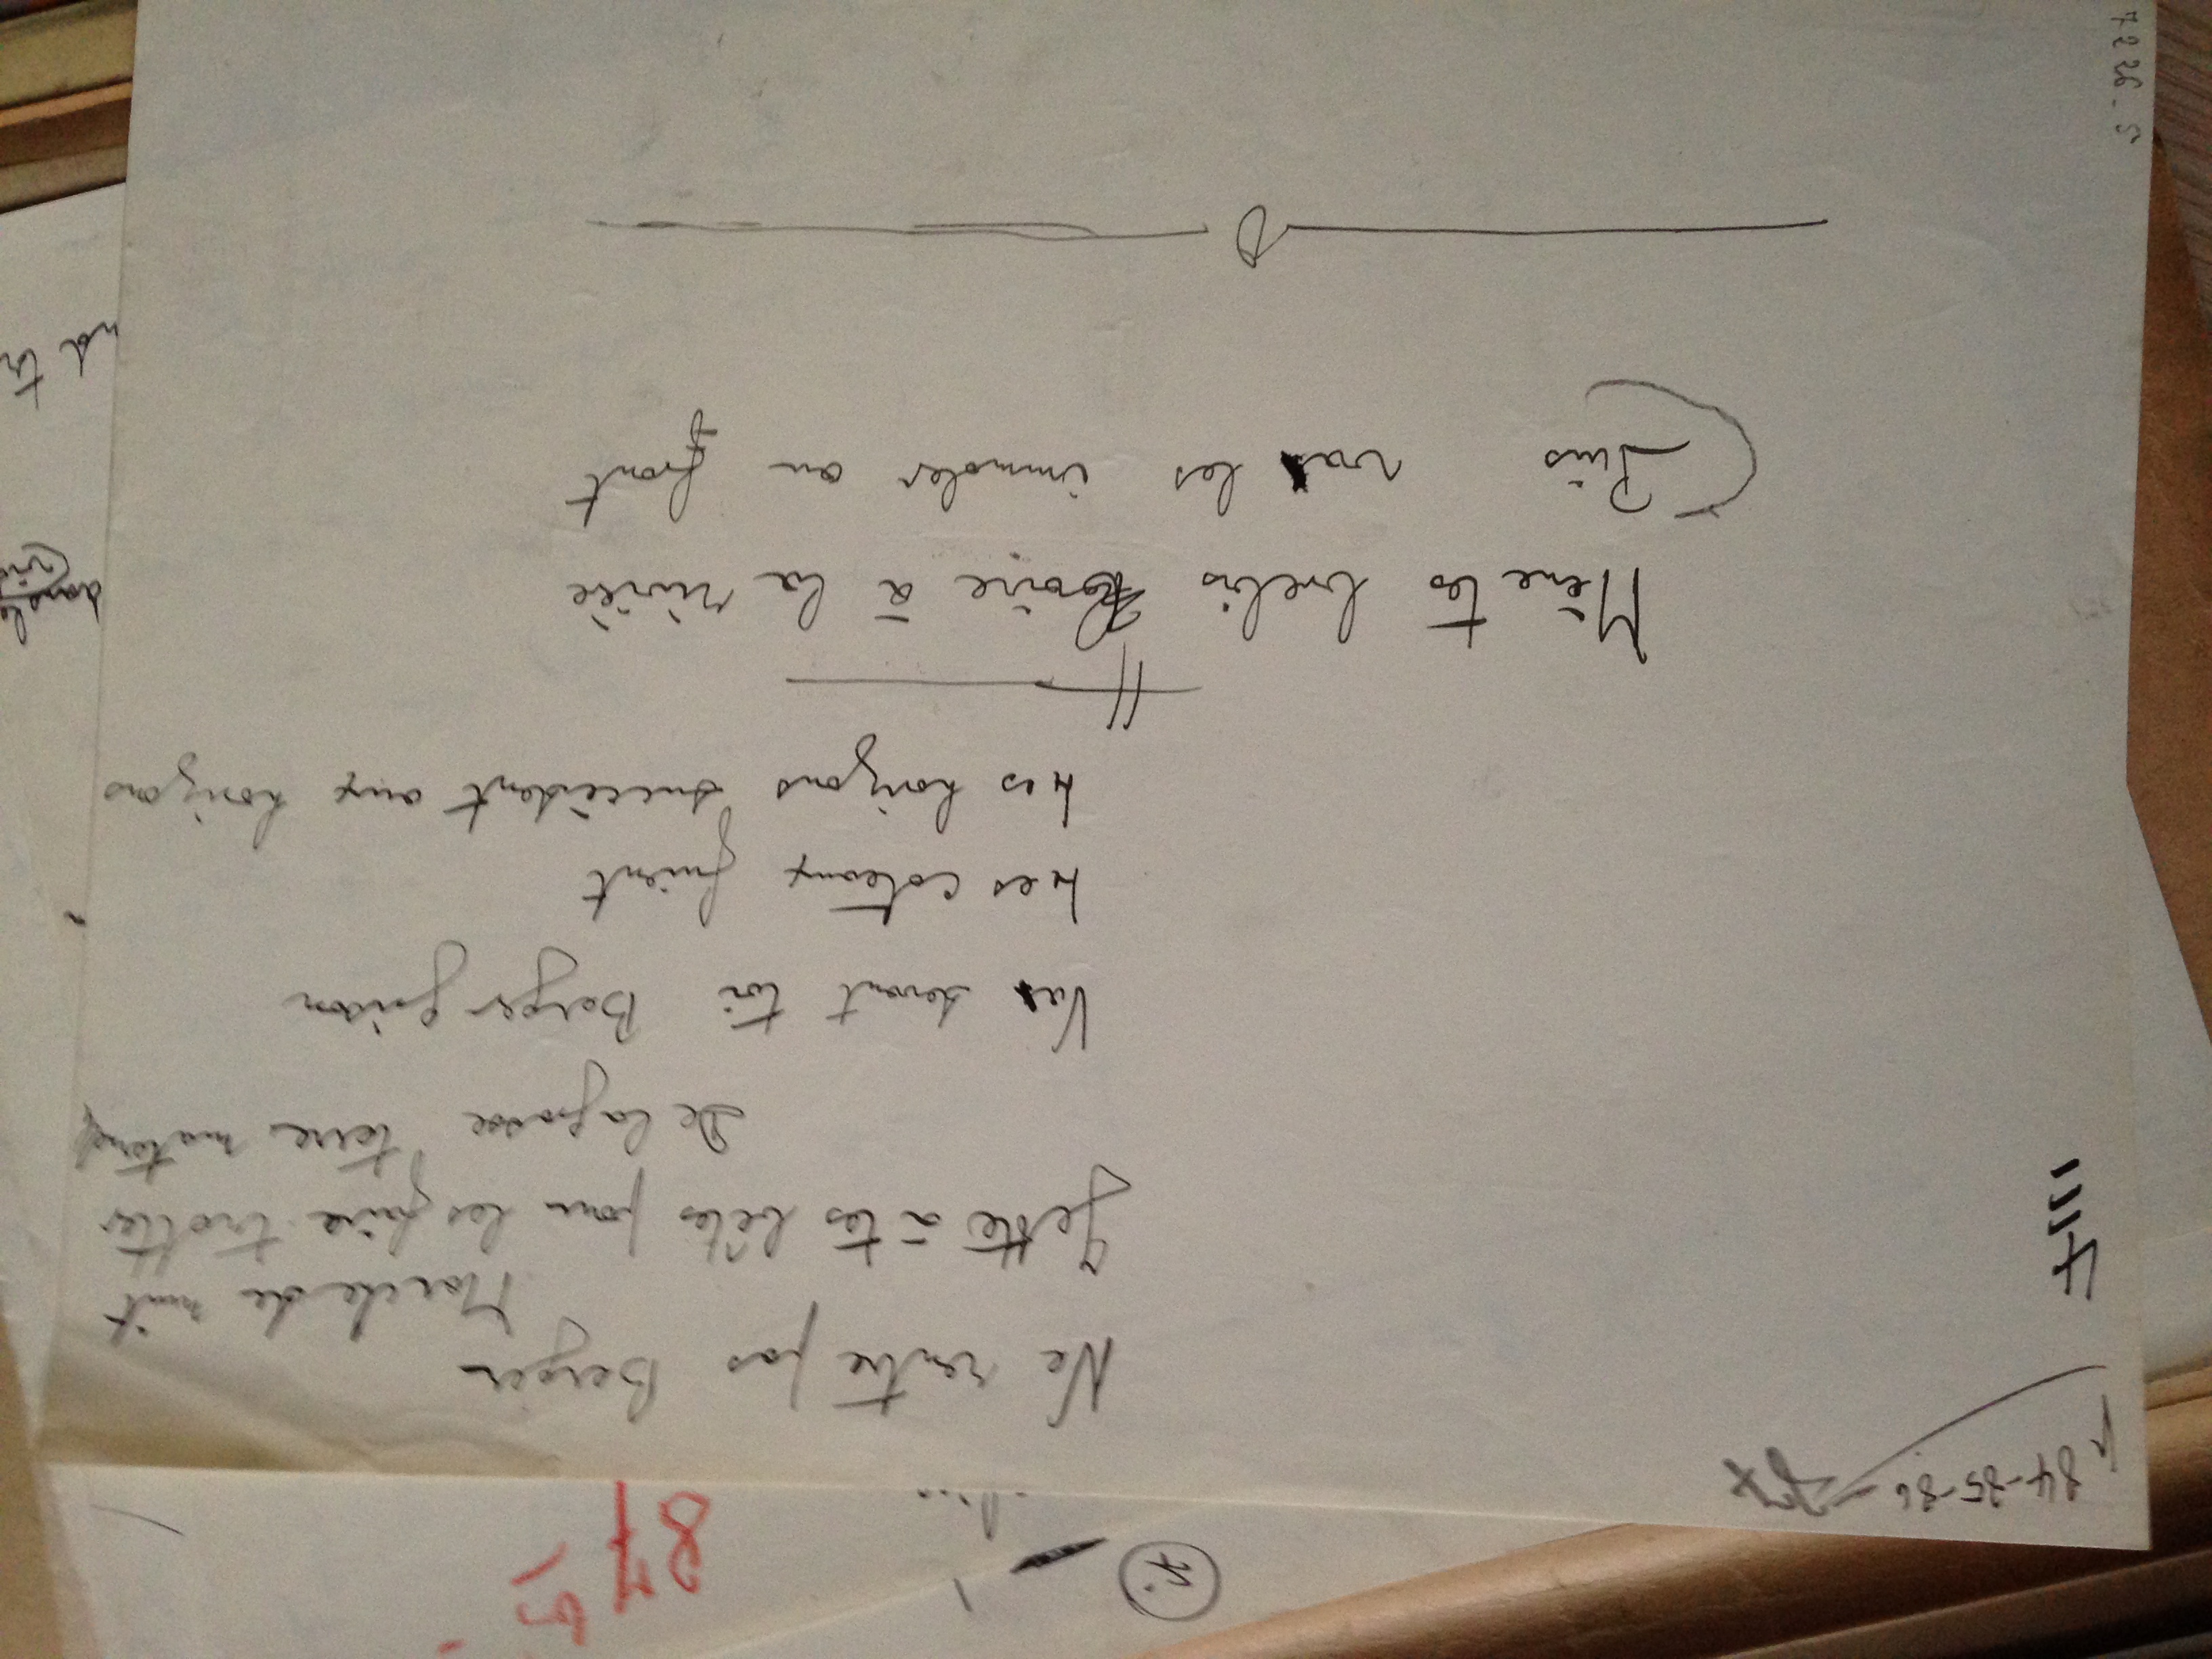 87 bis
p 84-85-86
4
Ne rentre pas Berger
Marche de nuit
Jette à tes bêtes pour les faire trotter
De la grosse terre maternel
Va devant toi Berger grison
Les coteaux fuient
Les horizons succèdent aux horizons
Mène tes brebis boire à la rivière
Puis va les immoler au front
dans le
nd tr
7226-5